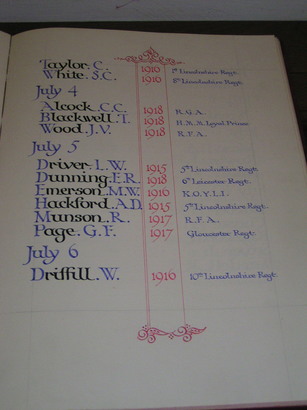 Taylor. C. 1916 1st Lincolnshire Regt.
White. S.C. 1916 8th Lincolnshire Regt.
July 4
Alcock. C.C. 1918 R.G.A.
Blackwell. T. 1918 H.M.M. Loyal Prince
Wood. J.V. 1918 R.F.A.
July 5
Driver. L.W. 1915 5th Lincolnshire Regt.
Dunning. E.R. 1918 6th Leicester Regt.
Emerson. M.W. 1916 K.O.Y.L.I.
Hackford. A.D. 1915 5th Lincolnshire Regt.
Munson. R. 1917 R.F.A.
Page. G.F. 1917 Gloucester Regt.
July 6
Driffill. W. 1916 10th Lincolnshire Regt.